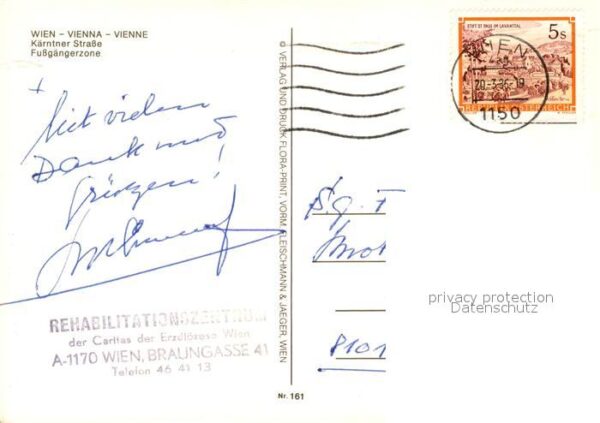 WIEN - VIENNA - VIENNE
Kärntner Straße
Fußgängerzone
+
Mit vielen
Dank und
grüßen!
REHABILITATIONSZENTRUM
der Caritas der Erzdiözese Wien
A-1170 WIEN, BRAUNGASSE 41
Telefon 46 41 13
© VERLAG UND DRUCK FLORA-PRINT, VORM. FLEISCHMANN & JAEGER, WIEN
Nr. 161
STIFT ST. PAUL IM LAVANTTAL
5s
WIEN
1150
REPUBLIK ÖSTERREICH
S.g. F
8101
privacy protection
Datenschutz